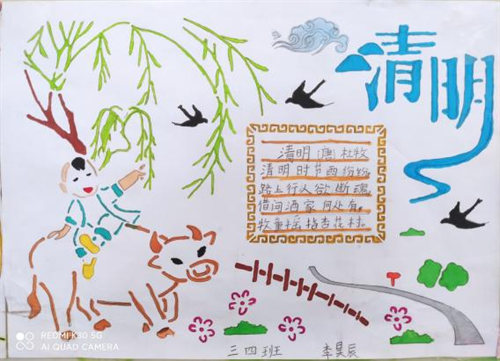 清明
清明 (唐) 杜牧
清明时节雨纷纷
路上行人欲断魂
借问酒家何处有。
牧童摇指杏花村。
三四班 李昊辰
REDMI K80 5G
AI QUAD CAMERA